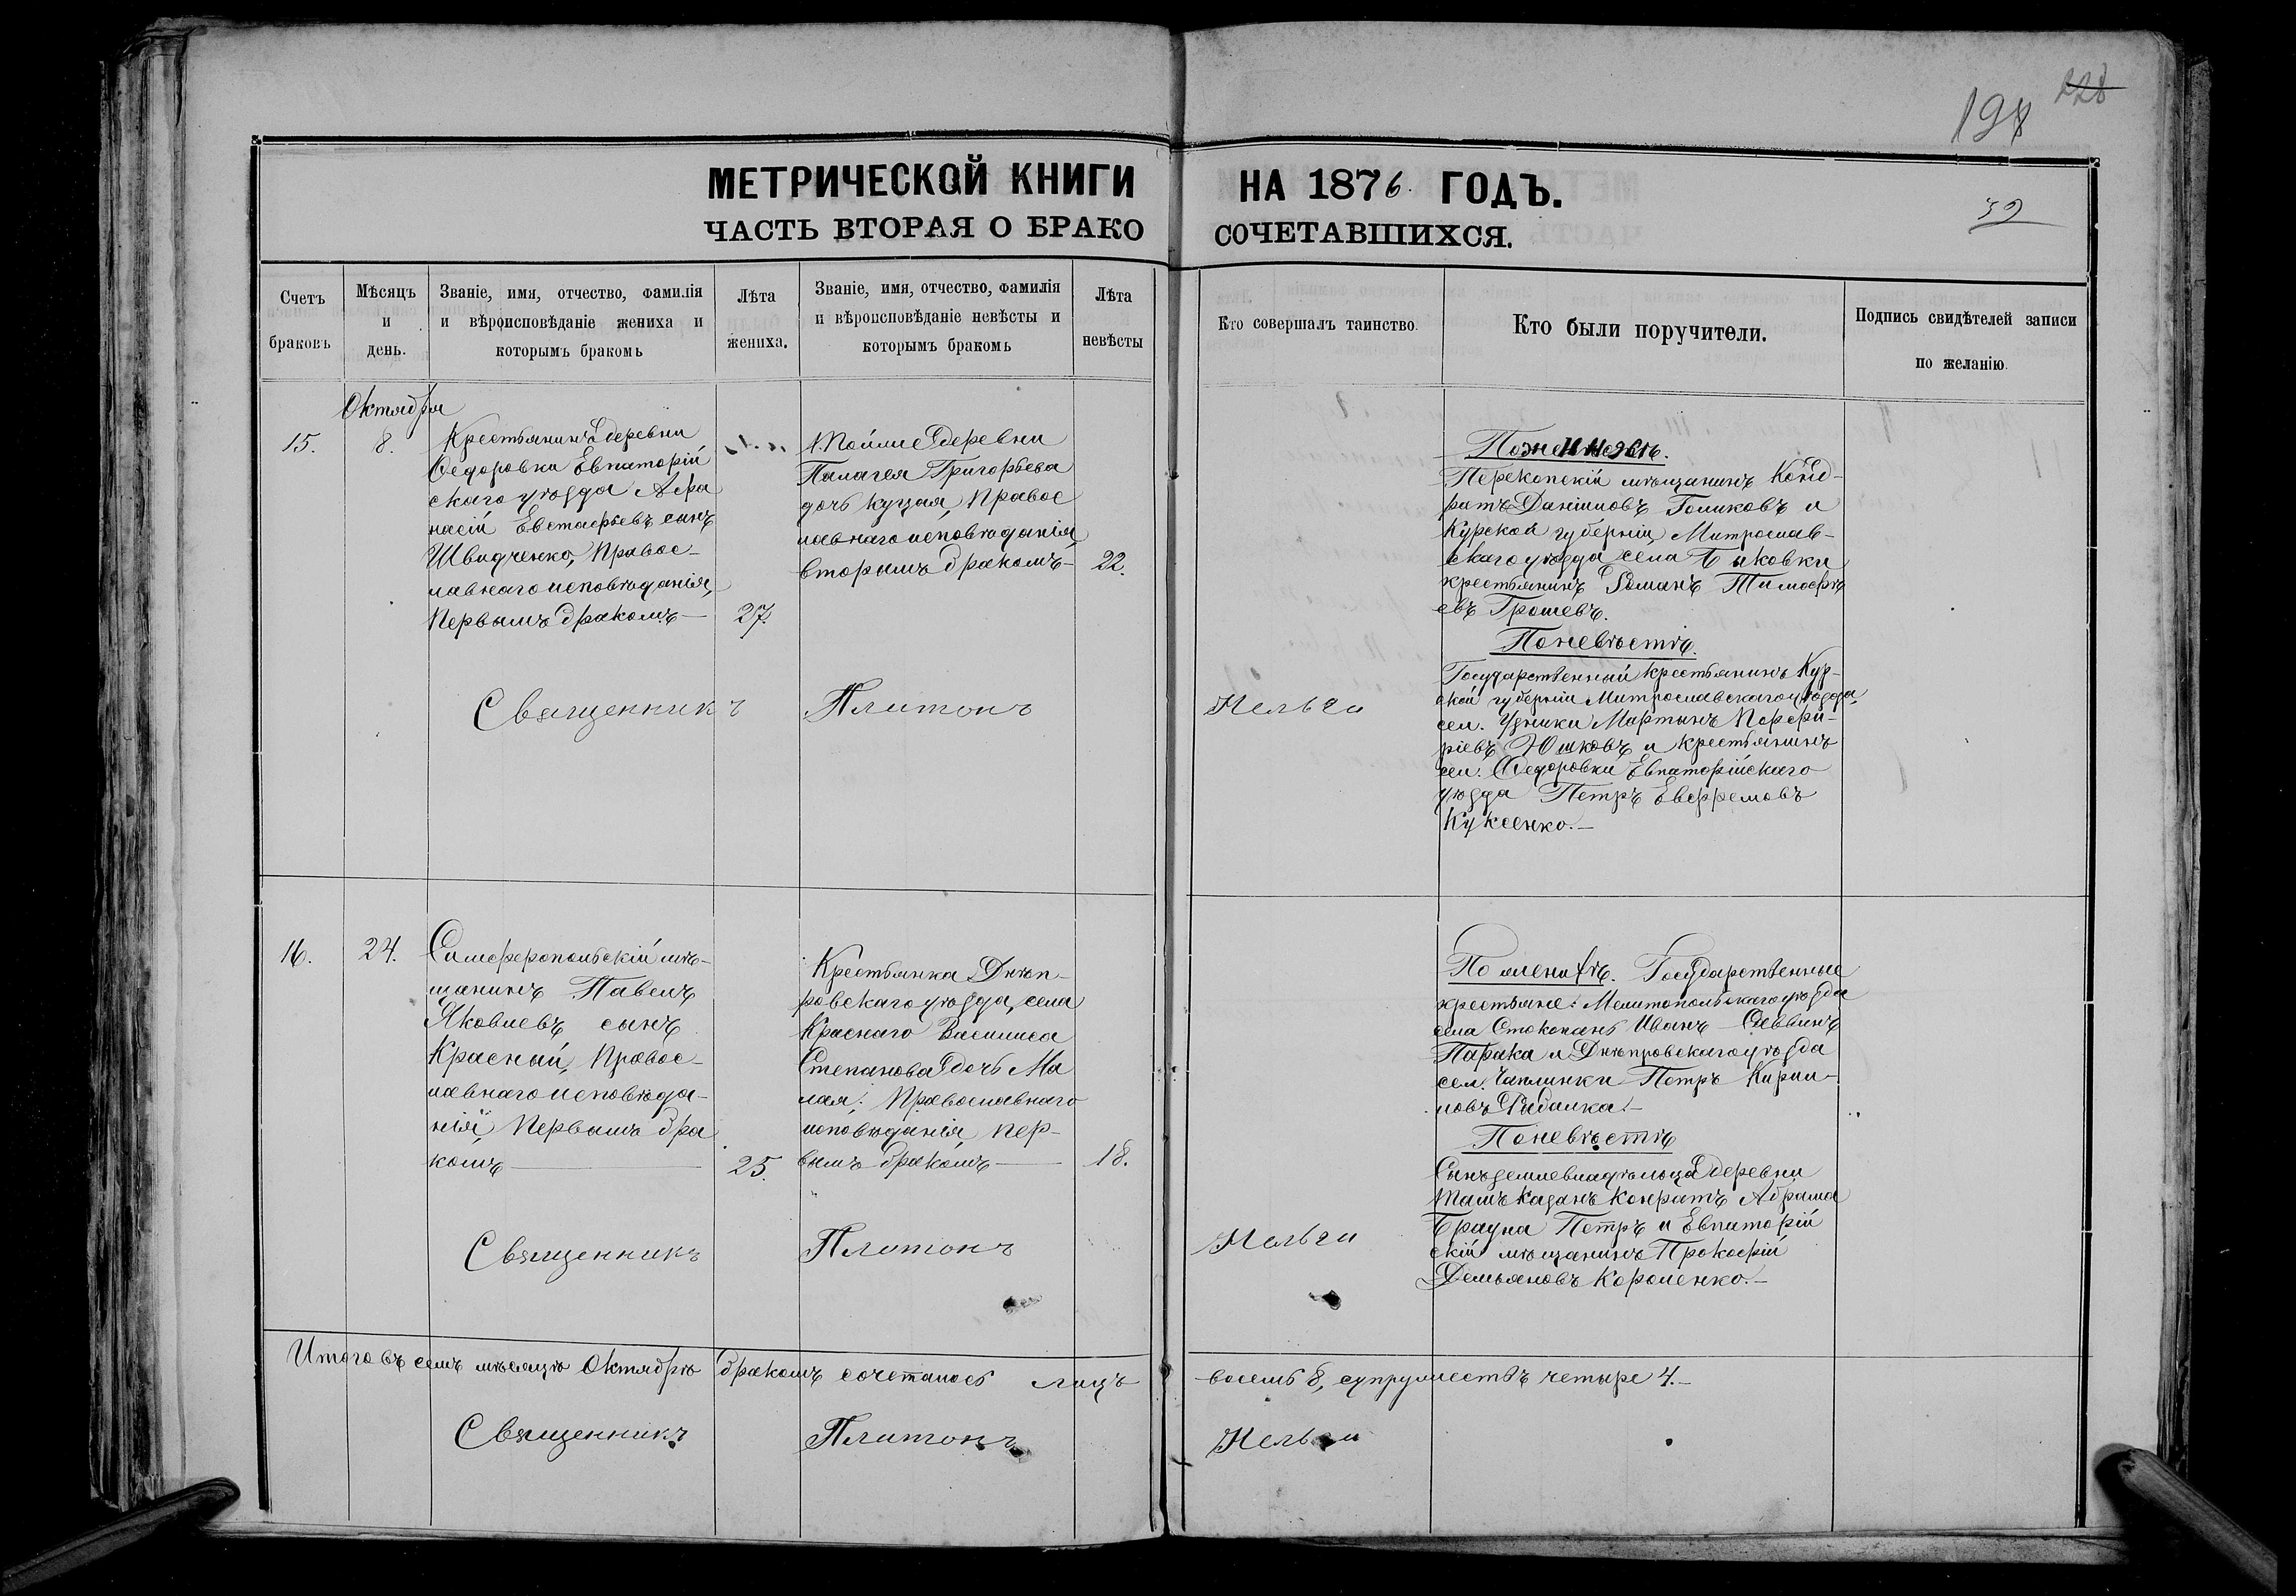 198 228
МЕТРИЧЕСКОЙ КНИГИ НА 1876 ГОДЪ.
ЧАСТЬ ВТОРАЯ О БРАКО СОЧЕТАВШИХСЯ.
39
Счетъ браковъ
Мѣсяцъ и день.
Званіе, имя, отчество, фамилія
и вѣроисповѣданіе жениха и
которымъ бракомъ
Лѣта жениха.
Званіе, имя, отчество, фамилія
и вѣроисповѣданіе невѣсты и
которымъ бракомъ
Лѣта невѣсты
Кто совершалъ таинство.
Кто были поручители.
Подпись свидѣтелей записи
по желанію.
Октября
15.
8.
Крестьянинъ деревни
Федоровки Евпаторій
скаго уѣзда Афа
насій Евстафьевъ сынъ
Швидченко, Правос-
лавнаго исповѣданія,
Первымъ бракомъ —
27.
деревни
Палагея Григорьева
дочь Куцая, Правос
лавнаго исповѣданія,
вторымъ бракомъ —
22.
По женихѣ.
Перекопскій мѣщанинъ Конд-
ратъ Даніиловъ Голиковъ и
Курской губерніи Митрослав-
скаго уѣзда села Быковки
крестьянинъ Романъ Тимофѣ
евъ Грошевъ.
По невѣстѣ.
Государственный крестьянинъ Кур-
ской губерніи Митрославскаго уѣзда,
сел. Мартынъ Порфи-
ріевъ Юшковъ и крестьянинъ
сел. Федоровки Евпаторійскаго
уѣзда Петръ Евфремовъ
Куксенко. —
Священникъ Платонъ Кельчи
16.
24.
Симферопольскій мѣ-
щанинъ Павелъ
Яковлевъ сынъ
Красный, Правос-
лавнаго исповѣда-
нія, Первымъ бра
комъ —
25.
Крестьянка Днѣп-
ровскаго уѣзда, села
Краснаго Василиса
Степанова дочь Ма
лая, Православнаго
исповѣданія, пер-
вымъ бракомъ —
18.
По женихѣ. Государственные
крестьяне: Мелитопольскаго уѣзда
села Стокопань Иванъ Саввинъ
Парака и Днѣпровскаго уѣзда
сел. Чаплинки Петръ Кирил-
ловъ Рыбалка. —
По невѣстѣ
Сынъ землевладѣльца деревни
Ташъ Казанъ Конратъ Абрама
Брауна Петръ и Евпаторій
скій мѣщанинъ Прокофій
Демьяновъ Короленко. —
Священникъ Платонъ Кельчи
Итого въ семъ мѣсяцѣ Октябрѣ бракомъ сочеталось лицъ восемь 8, супружествъ четыре 4. —
Священникъ Платонъ Кельчи